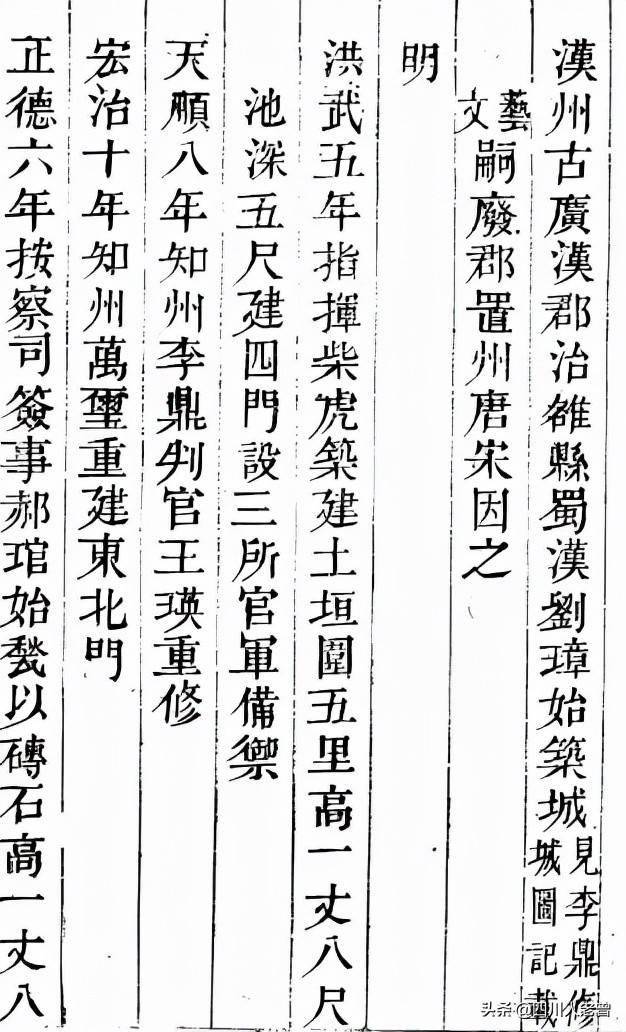 漢州古廣漢郡治雒縣蜀漢劉璋始築城見李鼎修城圖記載
藝文嗣廢郡置州唐宋因之
明
洪武五年指揮柴虎築建土垣圍五里高一丈八尺
池深五尺建四門設三所官軍備禦
天順八年知州李鼎判官王瑛重修
宏治十年知州萬璽重建東北門
正德六年按察司簽事郝琯始甃以磚石高一丈八
头条@四川人老曾